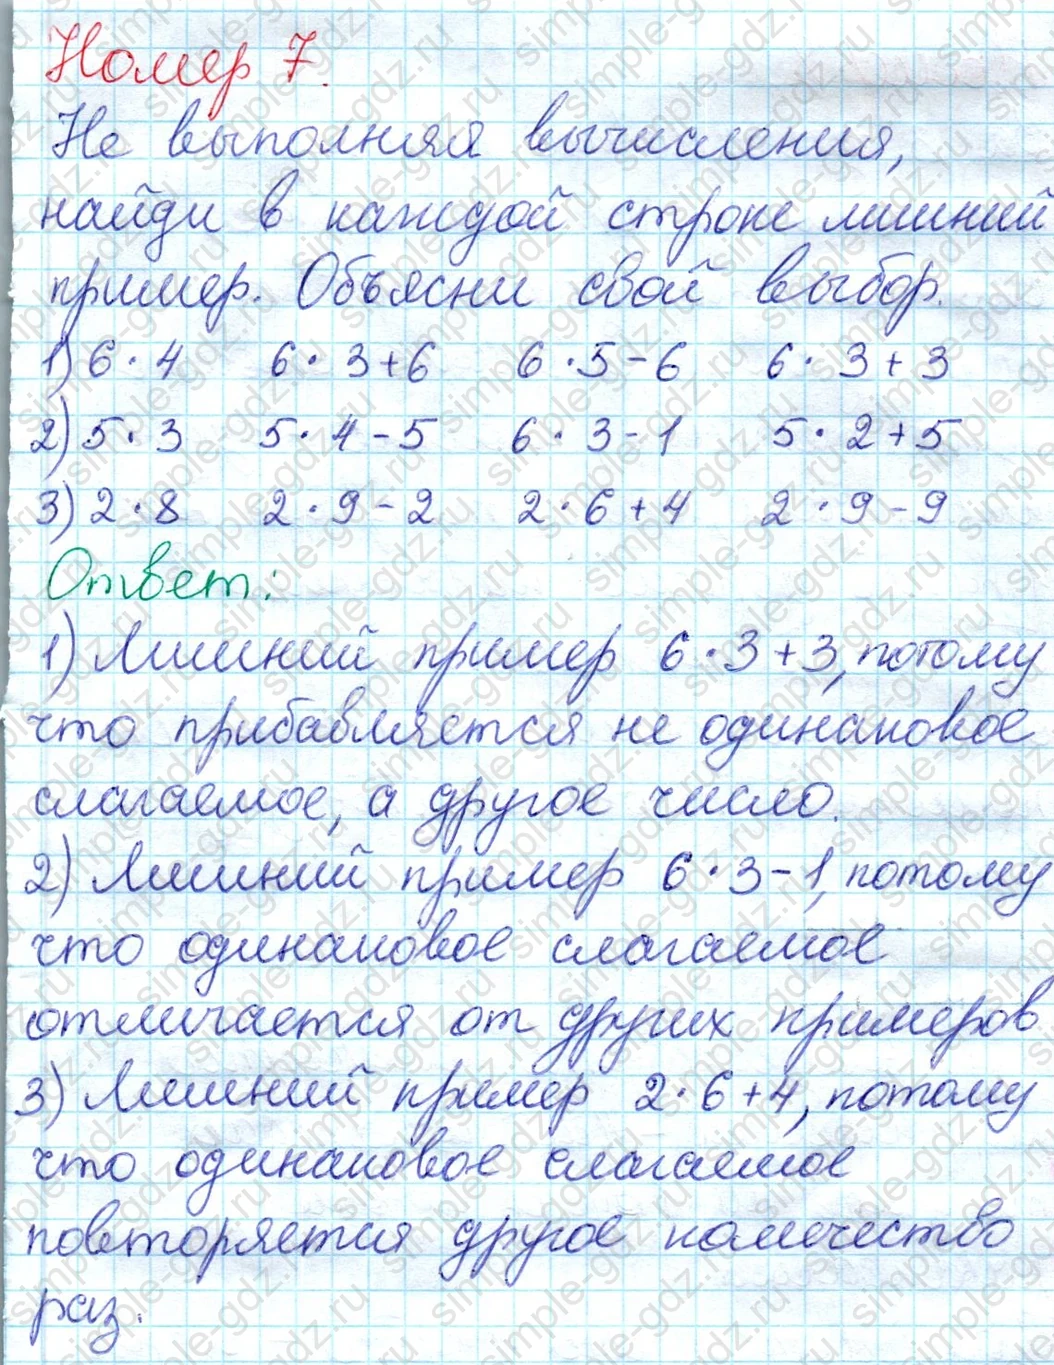 Номер 7.
Не выполняя вычисления,
найди в каждой строке лишний
пример. Объясни свой выбор.
1) 6 · 4 6 · 3 + 6 6 · 5 - 6 6 · 3 + 3
2) 5 · 3 5 · 4 - 5 6 · 3 - 1 5 · 2 + 5
3) 2 · 8 2 · 9 - 2 2 · 6 + 4 2 · 9 - 9
Ответ:
1) Лишний пример 6 · 3 + 3, потому
что прибавляется не одинаковое
слагаемое, а другое число.
2) Лишний пример 6 · 3 - 1, потому
что одинаковое слагаемое
отличается от других примеров
3) Лишний пример 2 · 6 + 4, потому
что одинаковое слагаемое
повторяется другое количество
раз.
simple-gdz.ru